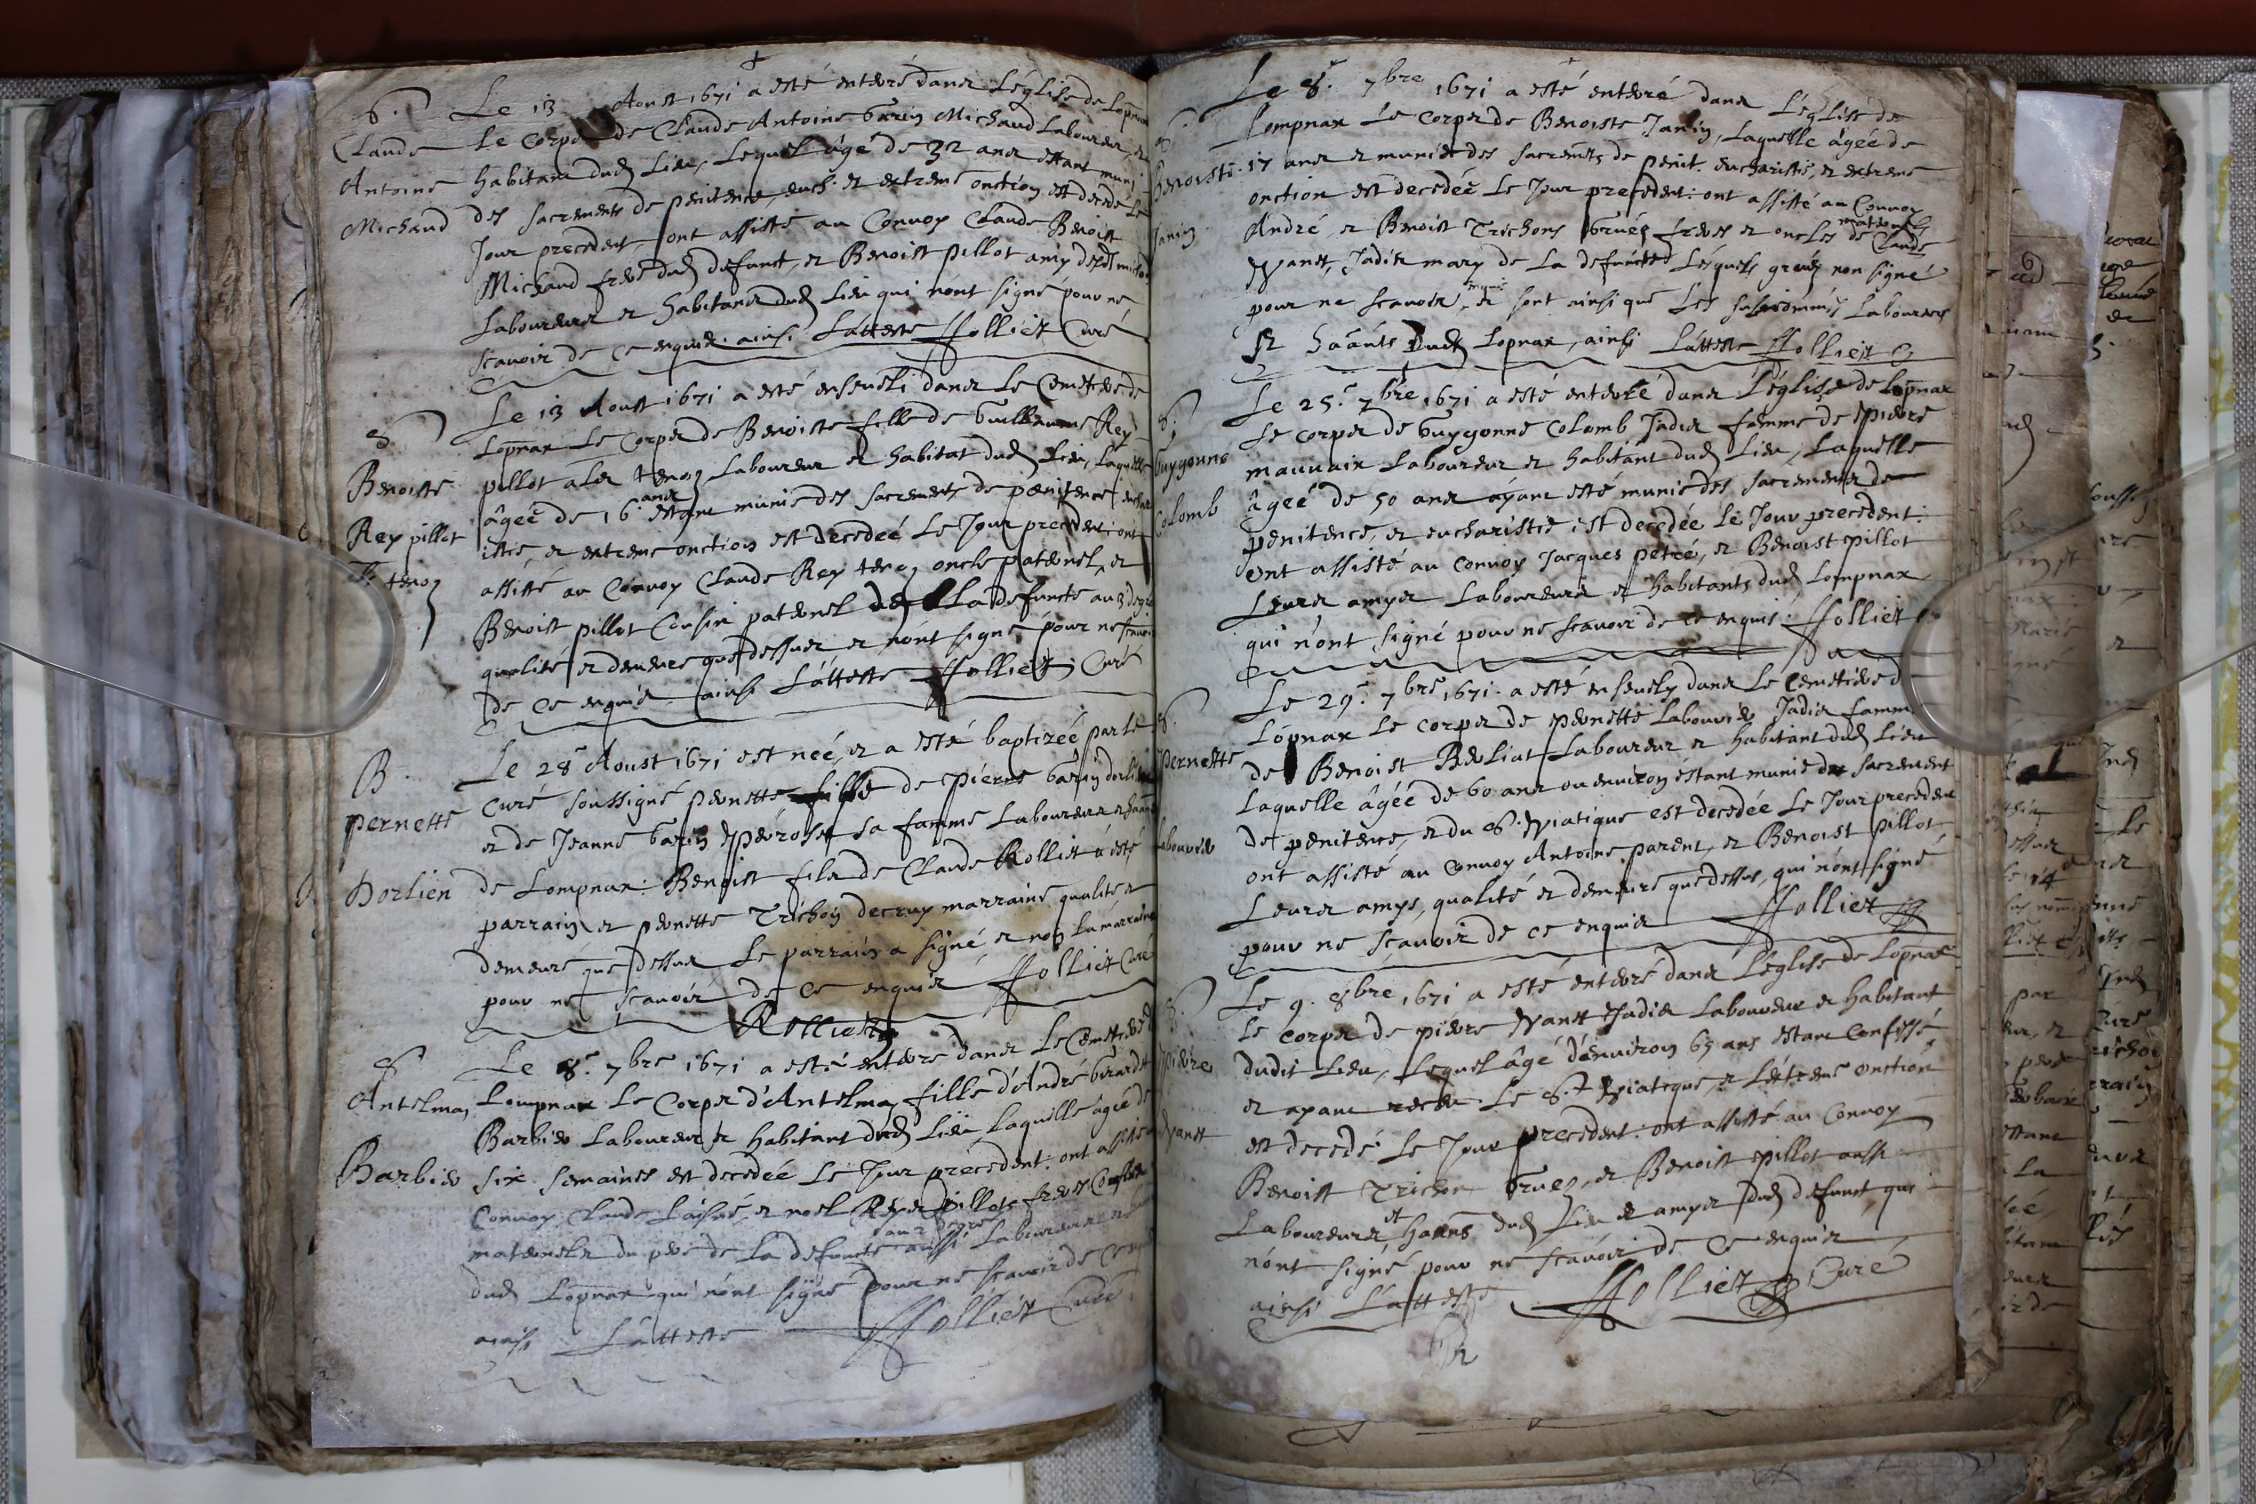 S. Le 13 Aoust 1671 a esté enterré dans L'église de Lopnax
Claude Le corps de Claude Antoine Garin Michaud Laboureur, et
Antoine habitant dud Lieu, Lequel âgé de 32 ans estant muni
Michaud des sacrements de penitence, euch. et extreme onction est decedé Le
Jour precedent ont assisté au Convoy Claude Benoist
Michaud frere dud defunct, et Benoist pillot amy
Laboureurs et habitans dud Lieu qui n'ont signé pour ne
scavoir de ce enquis. ainsi L'atteste Holliet Curé
Le 13 Aoust 1671 a esté enseveli dans Le Cemetiere de
S. Lopnax Le Corps de Benoiste fille de Guillaume Rey
Benoiste pillot aler tenoz Laboureur et habitat dud Lieu, Laquelle
âgeé de 16 ans estant munie des sacrements de pœnitence, euchar
Rey pillot istie, et extreme onction est decedeé Le Jour precedent: ont
tenoz assisté au Convoy Claude Rey tenoz oncle paternel, et
Benoist pillot Cousin paternel de La defuncte au 3 degré
qualité et demeure que dessus et n'ont signé pour ne scavoir
de ce enquis ainsi L'atteste Holliet Curé
B. Le 28 Aoust 1671 est neé, et a esté baptizeé par Le
pernette Curé soussigné pernette fille de pierre Garin dorlien
et de Jeanne Garin peroset sa famme Laboureurs
Dorlien de Lompnax: Benoist fils de Claude Rolliet a esté
parrain et pernette Trichon decruy marraine qualité, et
demeure que dessus Le parrain a signé et non La marraine
pour ne scavoir de ce enquis Holliet Curé
Rolliet
S. Le 8. 7bre 1671 a esté enterre dans Le Cemetiere d
Antelma Lompnax Le Corps d'Antelma fille d'André Girardet
Barbier Laboureur et habitant dud Lieu Laquelle âgeé de
Barbier six semaines est decedeé Le Jour precedent: ont assisté
Convoy Claude Laisné, et noel Rey pillot freres Cousins
maternels du pere de La defuncte aussi Laboureurs
dud Lopnax qui n'ont signé pour ne scavoir de ce
ainsi L'atteste Holliet Curé
Le 8. 7bre 1671 a esté enterré dans L'église de
S. Lompnax Le Corps de Benoiste Janin, Laquelle âgéé de
Benoiste 17 ans et munie des sacremets de penit. eucharistie, et extreme
onction est decedéé Le Jour precedent: ont assisté au Convoy
Janin André, et Benoist Trichons Gruéz freres et oncles maternels de Claude
Yvanet, Jadis mary de La defuncte Lesquels n'ont signé
pour ne scavoir, et sont ainsi que Les susnommés Laboureurs
et haants dud Lopnax, ainsi L'atteste Holliet C
Le 25. 7bre 1671 a esté enterré dans L'église de Lopnax
S. Le corps de Guygonne Colomb Jadis famme de pierre
Guygonne mauvaix Laboureur et habitant dud Lieu, Laquelle
Colomb âgeé de 50 ans ayant esté munie des sacrements de
penitence, et eucharistie est decedée Le Jour precedent:
ont assisté au Convoy Jacques petré, et Benoist pillot
Leurs amys Laboureurs et habitants dud Lompnax
qui n'ont signé pour ne scavoir de ce enquis: Holliet
Le 29. 7bre 1671. a esté ensevely dans Le Cemetiere d
S. Lopnax Le corps de pernette Labourier Jadis famme
pernette de Benoist Berliat Laboureur et habitant dud Lieu
Laquelle âgéé de 60 ans ou environ estant munie des sacrement
Labourier de penitence, et du S. Viatique est decedée Le Jour precedent
ont assisté au Convoy Antoine parent, et Benoist pillot
Leurs amys, qualité et demeure que dessus, qui n'ont signé
pour ne scavoir de ce enquis Holliet
Le 9. 8bre 1671 a esté enterré dans L'église de Lopnax
S. Le corps de pierre Yvanet Jadis Laboureur et habitant
pierre dudit Lieu, Lequel âgé d'environ 65 ans estant confessé,
et ayant receu Le St Viatique, et L'extreme onction
Yvanet est decedé Le Jour precedent: ont assisté au Convoy
Benoist Trichon Gruez, et Benoist pillot aussi
Laboureurs et haans dud Lieu et amys dud defunct, qui
n'ont signé pour ne scavoir de ce enquis
ainsi L'atteste Holliet Curé